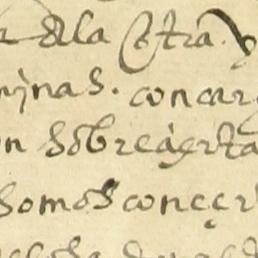 dela Cotra. y
minas. con car
n sobre cierta
somos concer